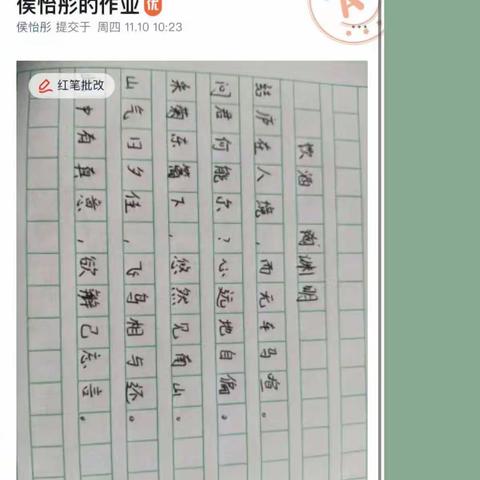 侯怡彤的作业 优
侯怡彤 提交于 周四 11.10 10:23
A
红笔批改
饮酒 陶渊明
结庐在人境，而无车马喧。
问君何能尔？心远地自偏。
采菊东篱下，悠然见南山。
山气日夕佳，飞鸟相与还。
中有真意，欲辨已忘言。